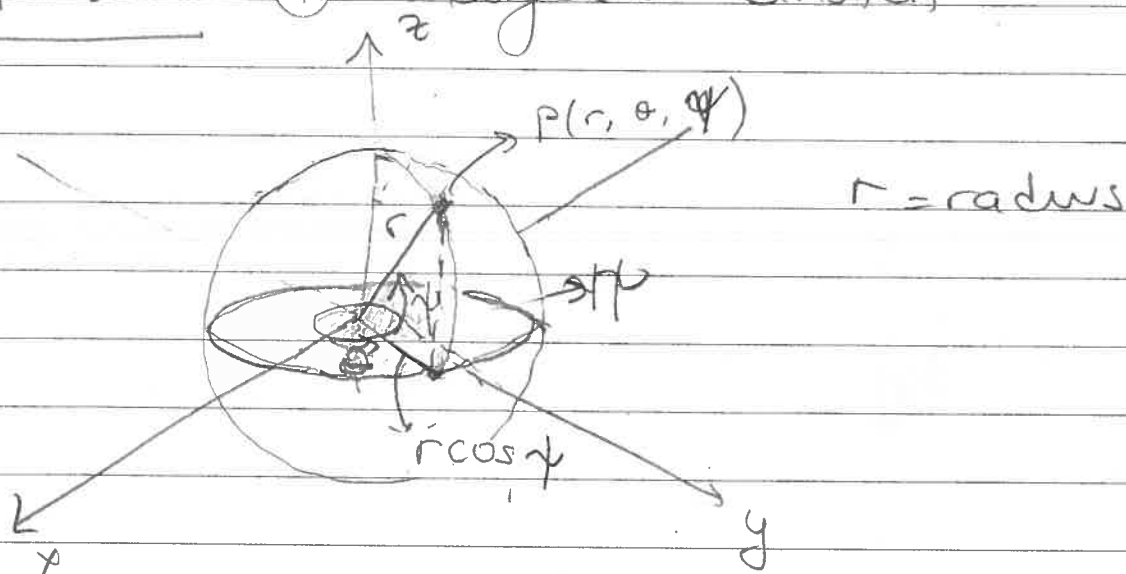 z
P(r, θ, ψ)
r = radius
r
ψ
θ
r cos ψ
x
y